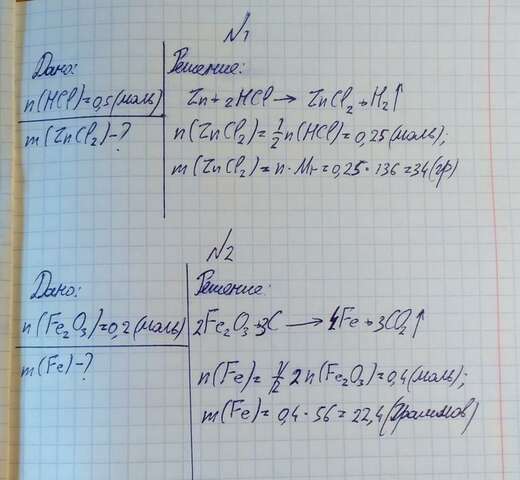 N1
Дано:
n(HCl)=0,5(моль)
m(ZnCl₂)-?
Решение:
Zn+2HCl→ZnCl₂+H₂↑
n(ZnCl₂)=1/2n(HCl)=0,25(моль);
m(ZnCl₂)=n·Mr=0,25·136=34(гр)
N2
Дано:
n(Fe₂O₃)=0,2(моль)
m(Fe)-?
Решение:
2Fe₂O₃+3C→4Fe+3CO₂↑
n(Fe)=2n(Fe₂O₃)=0,4(моль);
m(Fe)=0,4·56=22,4(граммов)